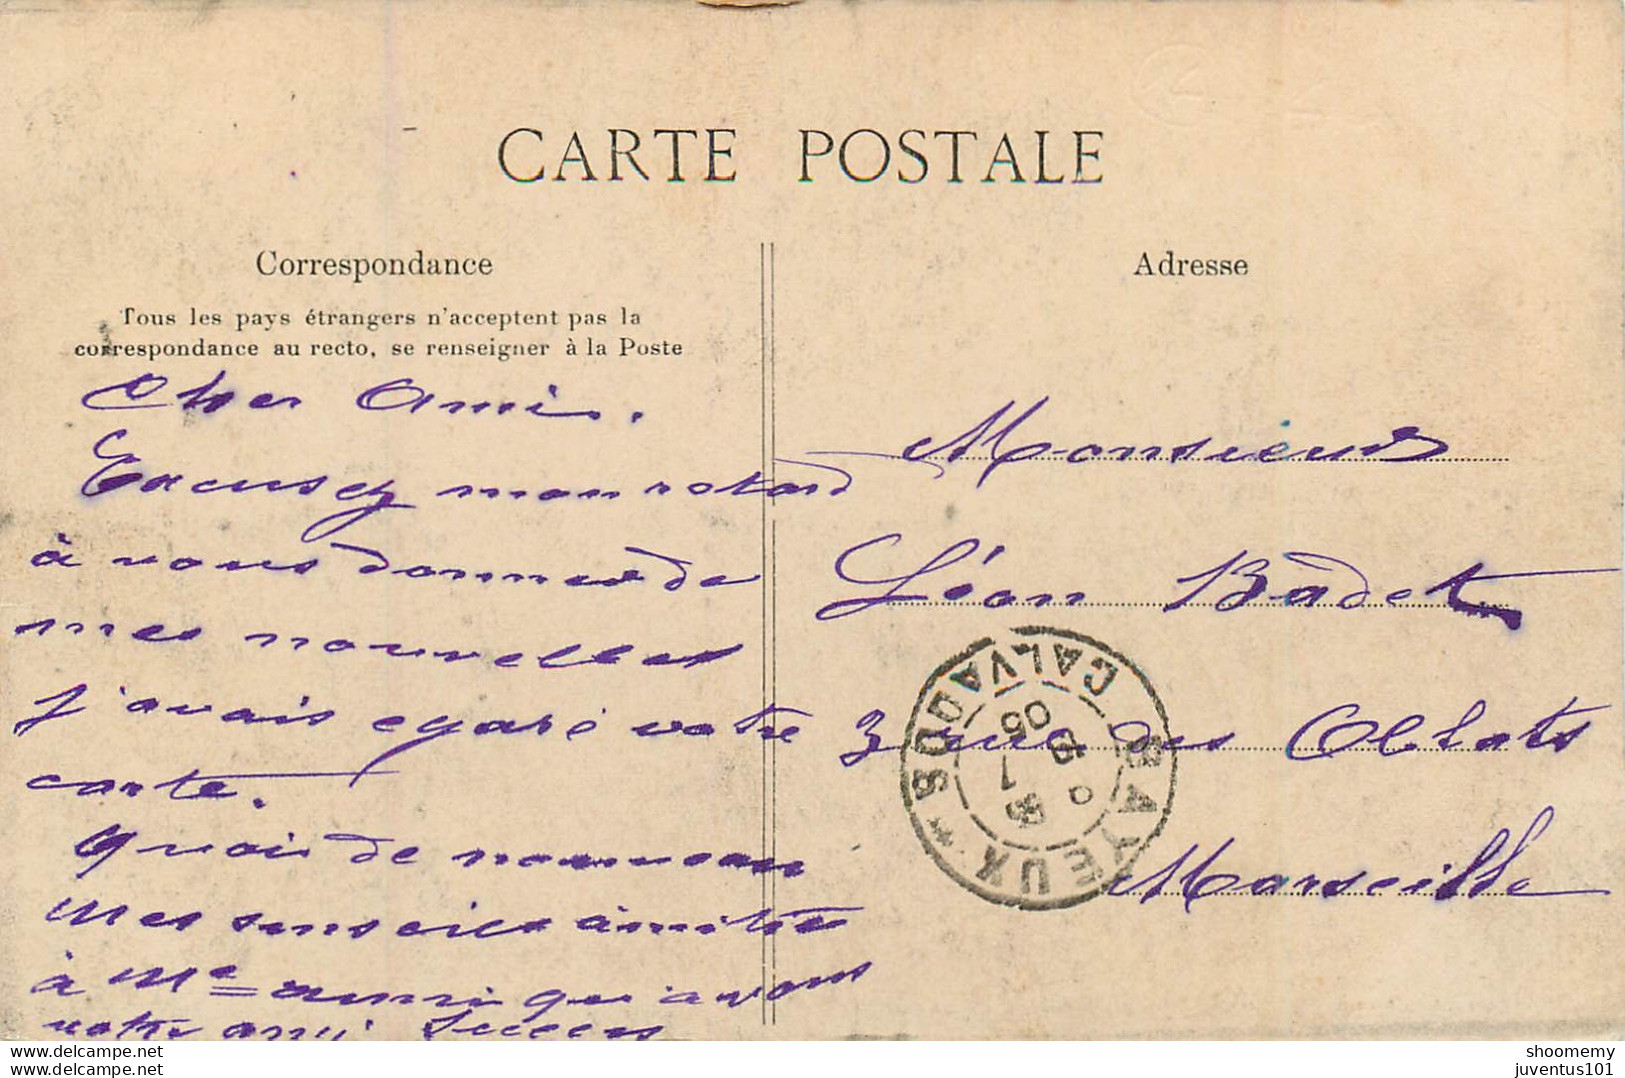 CARTE POSTALE
Correspondance
Tous les pays étrangers n'acceptent pas la
correspondance au recto, se renseigner à la Poste
Cher Ami.
Excusez mon retard
à vous donner de
mes nouvelles
j'avais egaré votre
carte.
Quoi de nouveau
Mes amitiés
à Me aussi qu'a vous
votre ami
Adresse
Monsieur
Léon Badet
3 rue des Oblats
Marseille
BAYEUX * CALVADOS
shoomemy
juventus101